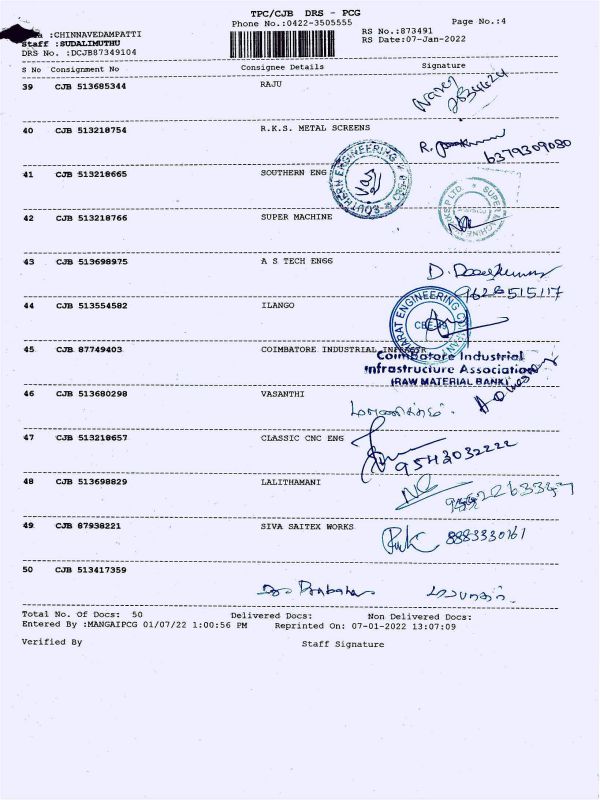 TPC/CJB DRS - PCG
Phone No.:0422-3505555
Page No.:4
:CHINNAVEDAMPATTI
Staff :SUDALIMUTHU
DRS No. :DCJB87349104
RS No.:873491
RS Date:07-Jan-2022
S No Consignment No Consignee Details Signature
39 CJB 513685344 RAJU
40 CJB 513218754 R.K.S. METAL SCREENS
R.
6379309080
41 CJB 513218665 SOUTHERN ENG
SOUTHERN ENGINEERING
42 CJB 513218766 SUPER MACHINE
43 CJB 513698975 A S TECH ENGG
9626515117
44 CJB 513554582 ILANGO
BHARAT ENGINEERING COMPANY
45 CJB 87749403 COIMBATORE INDUSTRIAL
Coimbatore Industrial
Infrastructure Association
(RAW MATERIAL BANK)
46 CJB 513680298 VASANTHI
47 CJB 513218657 CLASSIC CNC ENG
9543032222
48 CJB 513698829 LALITHAMANI
49 CJB 87938221 SIVA SAITEX WORKS
8883330161
50 CJB 513417359
Total No. Of Docs: 50 Delivered Docs: Non Delivered Docs:
Entered By :MANGAIPCG 01/07/22 1:00:56 PM Reprinted On: 07-01-2022 13:07:09
Verified By Staff Signature